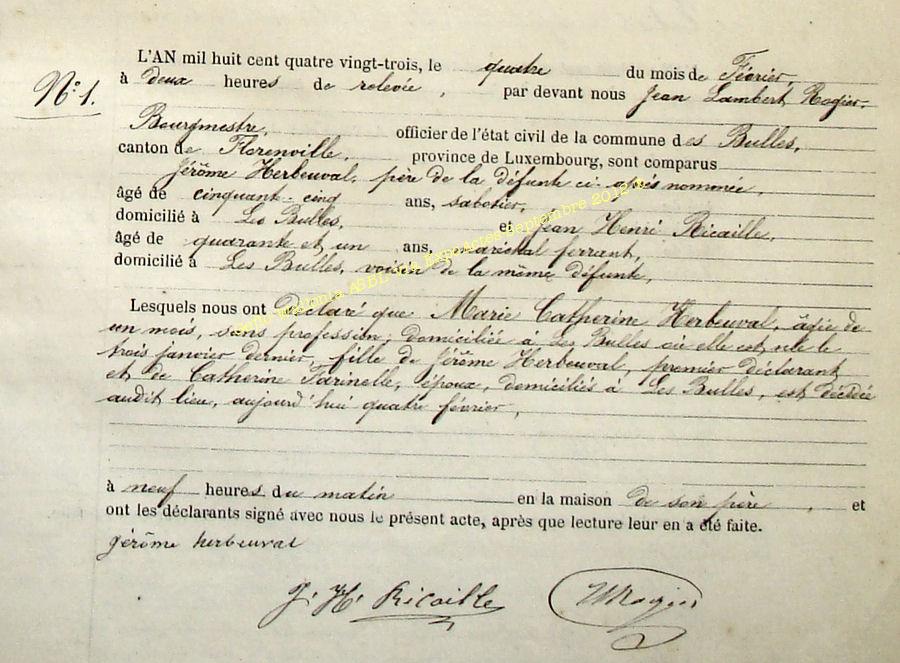 N° 1.
L'AN mil huit cent quatre vingt-trois, le quatre du mois de Février,
à deux heures de relevée, par devant nous Jean Lambert Rogier,
Bourgmestre, officier de l'état civil de la commune des Bulles,
canton de Florenville, province de Luxembourg, sont comparus
Jérôme Herbeuval, père de la défunte ci-après nommée,
âgé de cinquant-cinq ans, sabotier,
domicilié à Les Bulles, et Jean Henri Ricaille,
âgé de quarante et un ans, maréchal ferrant,
domicilié à Les Bulles, voisin de la même défunte,
Lesquels nous ont Déclaré que Marie Catherine Herbeuval, âgée de
un mois, sans profession, domiciliée à Les Bulles où elle est née le
trois janvier dernier, fille de Jérôme Herbeuval, premier déclarant
et de Catherine Farinelle, époux, domiciliés à Les Bulles, est décédée
audit lieu, aujourd'hui quatre février,
à neuf heures du matin en la maison de son père, et
ont les déclarants signé avec nous le présent acte, après que lecture leur en a été faite.
jérôme herbeuval
J. H. Ricaille
Rogier
ASBL ExpoActes Septembre 2012